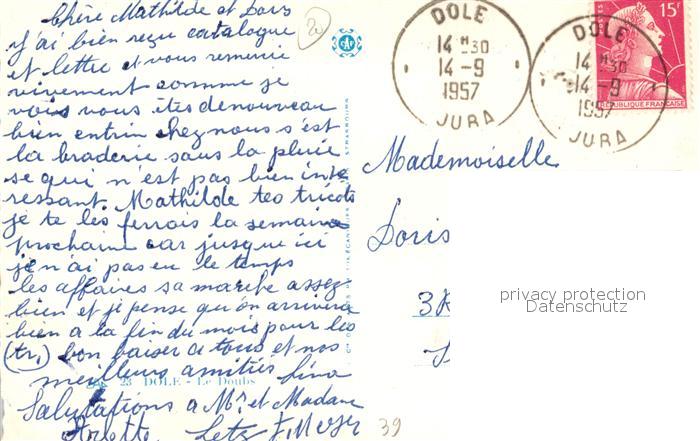 Chère Mathilde et Doris
j'ai bien reçu catalogue
et lettre et vous remercie
vivement comme je
vois vous êtes de nouveau
bien entrin chez nous s'est
la braderie sous la pluie
se qui n'est pas bien inte
ressant. Mathilde tes tricots
je te les ferrais la semaine
prochaine car jusque ici
je n'ai pas eu le temps
les affaires sa marche assez
bien et je pense qu'on arrivera
bien a la fin du mois pour les
(tr.) bon baiser a tous et nos
meilleurs amitiés Lina
23 DOLE - Le Doubs
Salutations a Mr. et Madame
DOLE
14 H 30
14-9
1957
JURA
DOLE
14 H 30
14-9
1957
JURA
15F
REPUBLIQUE FRANÇAISE
STRASBOURG
Mademoiselle
Doris
privacy protection
Datenschutz
39